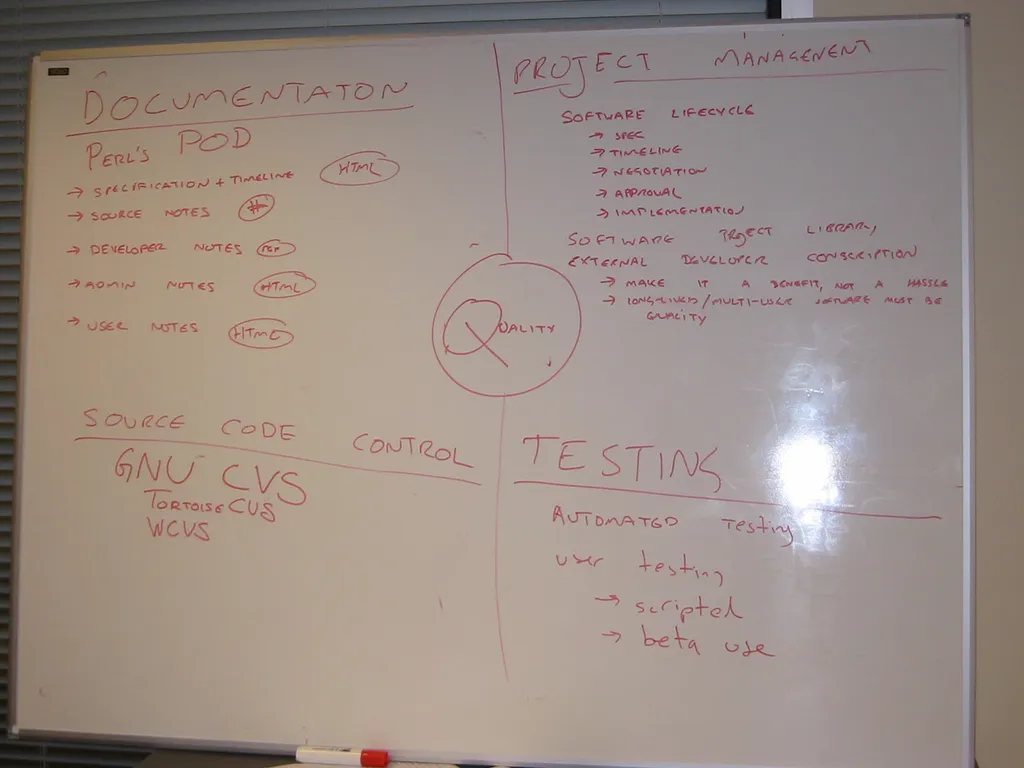 DOCUMENTATON
PERL'S POD
→ SPECIFICATION + TIMELINE HTML
→ SOURCE NOTES #
→ DEVELOPER NOTES
→ ADMIN NOTES HTML
→ USER NOTES HTML
PROJECT MANAGEMENT
SOFTWARE LIFECYCLE
→ SPEC
→ TIMELINE
→ NEGOTIATION
→ APPROVAL
→ IMPLEMENTATION
SOFTWARE PROJECT LIBRARY,
EXTERNAL DEVELOPER CONSCRIPTION
→ MAKE IT A BENEFIT, NOT A HASSLE
→ LONG-LIVED/MULTI-USER SOFTWARE MUST BE
QUALITY
QUALITY
SOURCE CODE CONTROL
GNU CVS
TORTOISECVS
WCVS
TESTING
AUTOMATED TESTING
user testing
→ scripted
→ beta use